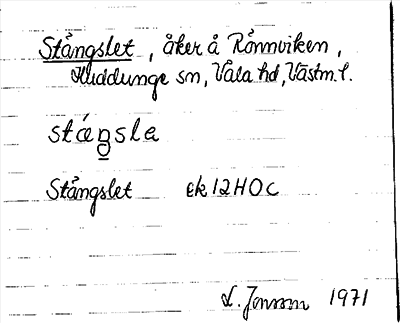 Stångslet, åker å Rönnviken,
Huddunge sn, Våla hd, Västm. l.
stáŋslα
Stångslet ek 12 HOC
L. Jonsson 1971